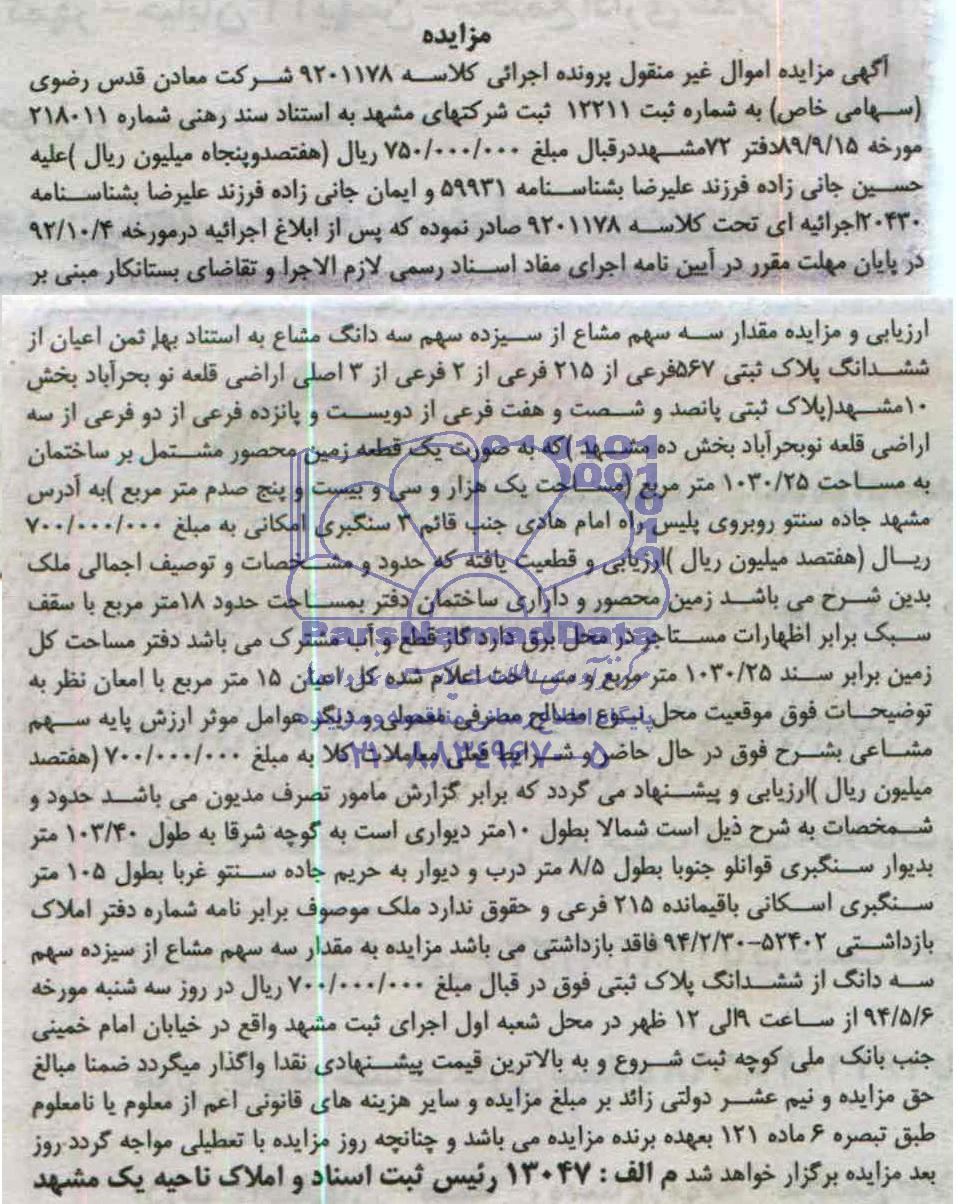 مزایده
آگهی مزایده اموال غیر منقول پرونده اجرائی کلاسه ۹۲۰۱۱۷۸ شرکت معادن قدس رضوی
(سهامی خاص) به شماره ثبت ۱۲۲۱۱ ثبت شرکتهای مشهد به استناد سند رهنی شماره ۲۱۸۰۱۱
مورخه ۸۹/۹/۱۵دفتر ۷۲مشهددرقبال مبلغ ۷۵۰/۰۰۰/۰۰۰ ریال (هفتصدوپنجاه میلیون ریال )علیه
حسین جانی زاده فرزند علیرضا بشناسنامه ۵۹۹۳۱ و ایمان جانی زاده فرزند علیرضا بشناسنامه
۲۰۴۳۰اجرائیه ای تحت کلاسه ۹۲۰۱۱۷۸ صادر نموده که پس از ابلاغ اجرائیه درمورخه ۹۲/۱۰/۴
در پایان مهلت مقرر در آیین نامه اجرای مفاد اسناد رسمی لازم الاجرا و تقاضای بستانکار مبنی بر
ارزیابی و مزایده مقدار سه سهم مشاع از سیزده سهم سه دانگ مشاع به استناد بهاء ثمن اعیان از
ششدانگ پلاک ثبتی ۵۶۷فرعی از ۲۱۵ فرعی از ۲ فرعی از ۳ اصلی اراضی قلعه نو بحرآباد بخش
۱۰مشهد(پلاک ثبتی پانصد و شصت و هفت فرعی از دویست و پانزده فرعی از دو فرعی از سه
اراضی قلعه نوبحرآباد بخش ده مشهد )که به صورت یک قطعه زمین محصور مشتمل بر ساختمان
به مساحت ۱۰۳۰/۲۵ متر مربع (مساحت یک هزار و سی و بیست و پنج صدم متر مربع )به آدرس
مشهد جاده سنتو روبروی پلیس راه امام هادی جنب قائم ۳ سنگبری امکانی به مبلغ ۷۰۰/۰۰۰/۰۰۰
ریال (هفتصد میلیون ریال )ارزیابی و قطعیت یافته که حدود و مشخصات و توصیف اجمالی ملک
بدین شرح می باشد زمین محصور و داراری ساختمان دفتر بمساحت حدود ۱۸متر مربع با سقف
سبک برابر اظهارات مستاجر در محل برق دارد گاز قطع و آب مشترک می باشد دفتر مساحت کل
زمین برابر سند ۱۰۳۰/۲۵ متر مربع و مساحت اعلام شده کل اعیان ۱۵ متر مربع با امعان نظر به
توضیحات فوق موقعیت محل نوع مصالح مصرفی معمولی و دیگر عوامل موثر ارزش پایه سهم
مشاعی بشرح فوق در حال حاضر و شرایط فعلی معاملات کلا به مبلغ ۷۰۰/۰۰۰/۰۰۰ (هفتصد
میلیون ریال )ارزیابی و پیشنهاد می گردد که برابر گزارش مامور تصرف مدیون می باشد حدود و
شمخصات به شرح ذیل است شمالا بطول ۱۰متر دیواری است به کوچه شرقا به طول ۱۰۳/۴۰ متر
بدیوار سنگبری قوانلو جنوبا بطول ۸/۵ متر درب و دیوار به حریم جاده سنتو غربا بطول ۱۰۵ متر
سنگبری اسکانی باقیمانده ۲۱۵ فرعی و حقوق ندارد ملک موصوف برابر نامه شماره دفتر املاک
بازداشتی ۵۲۴۰۲-۹۴/۲/۳۰ فاقد بازداشتی می باشد مزایده به مقدار سه سهم مشاع از سیزده سهم
سه دانگ از ششدانگ پلاک ثبتی فوق در قبال مبلغ ۷۰۰/۰۰۰/۰۰۰ ریال در روز سه شنبه مورخه
۹۴/۵/۶ از ساعت ۹الی ۱۲ ظهر در محل شعبه اول اجرای ثبت مشهد واقع در خیابان امام خمینی
جنب بانک ملی کوچه ثبت شروع و به بالاترین قیمت پیشنهادی نقدا واگذار میگردد ضمنا مبالغ
حق مزایده و نیم عشر دولتی زائد بر مبلغ مزایده و سایر هزینه های قانونی اعم از معلوم یا نامعلوم
طبق تبصره ۶ ماده ۱۲۱ بعهده برنده مزایده می باشد و چنانچه روز مزایده با تعطیلی مواجه گردد روز
بعد مزایده برگزار خواهد شد م الف : ۱۳۰۴۷ رئیس ثبت اسناد و املاک ناحیه یک مشهد
ParsNamadData
پایگاه اطلاع رسانی مناقصه و مزایده
۰۲۱-۸۸۳۴۹۶۷۰-۵